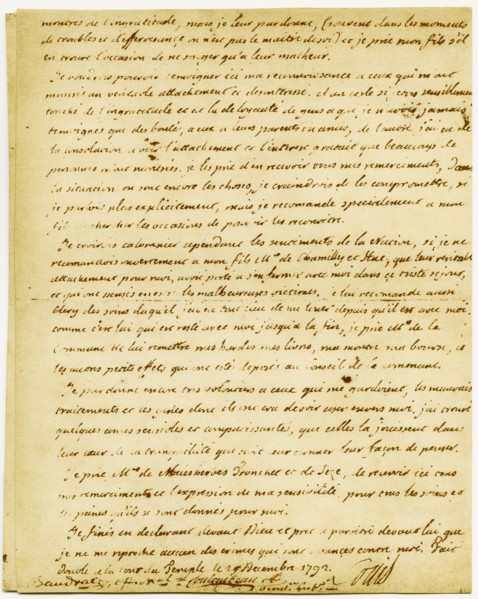 montrés de l'ingratitude, mais je leur pardonne, (souvent dans les moments
de troubles et d'effervescence on n'est pas le maitre de soi) et je prie mon fils s'il
en trouve l'occasion de ne songer qu'a leur malheur.
Je voudrois pouvoir temoigner ici ma reconnoissance a ceux qui m'ont
montré un veritable attachement et desinteressé. d'un coste si j'étois sensiblement
touché de l'ingratitude et de la deloyauté de gens a qui je n'avois jamais
temoignés que des bontés, a eux a leurs parents ou amis, de l'autre, j'ai eu de
la consolation a voir l'attachement et l'interest gratuit que beaucoup de
personnes m'ont montrés. je les prie d'en recevoir tous mes remerciments, Dans
la situation ou sont encore les choses, je craindrois de les compromettre, si
je parlois plus explicitement, mais je recomande specialement a mon
fils de chercher les occasions de pouvoir les reconnoitre.
Je croirois calomnier cependant les sentiments de la Nation, si je ne
recomandois ouvertement a mon fils Mrs de Chamilly et Hue, que leur veritable
attachement pour moi, avoit porté a s'enfermer avec moi dans ce triste sejour,
et qui ont pensés en etre les malheureuses victimes. je lui recomande aussi
Clery des soins duquel j'ai eu tout lieu de me louer depuis qu'il est avec moi.
comme c'est lui qui est resté avec moi jusqu'a la fin, je prie Mrs de la
Commune de lui remettre mes hardes mes livres, ma montre ma bourse, et
les autres petits effets qui ont été deposés au Conseil de la commune.
Je pardonne encore tres volontiers a ceux qui me gardoient, les mauvais
traitements et les gesnes dont ils ont cru devoir user envers moi. j'ai trouvé
quelques ames sensibles et compatissantes, que celles la jouissent dans
leur cœur de la tranquillité que doit leur donner leur façon de penser.
Je prie Mrs de Malesherbes Tronchet et de Seze, de recevoir ici tous
mes remerciments et l'expression de ma sensibilité, pour tous les soins et
les peines qu'ils se sont donnés pour moi.
Je finis en declarant devant Dieu et pret a paroitre devant lui que
je ne me reproche aucun des crimes qui sont avancés contre moi. Fait
double a la tour du Temple le 25 Decembre 1792.
Baudrais Louis